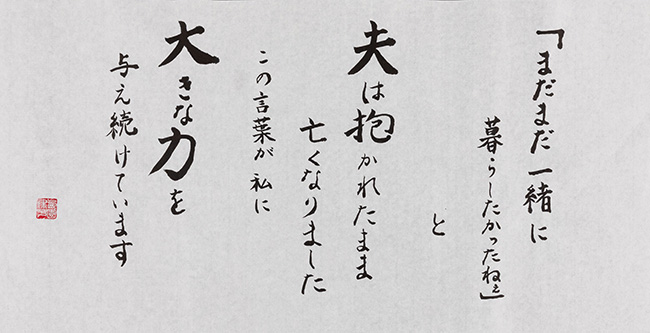 「まだまだ一緒に
暮らしたかったねぇ」
と
夫は抱かれたまま
亡くなりました
この言葉が私に
大きな力を
与え続けています